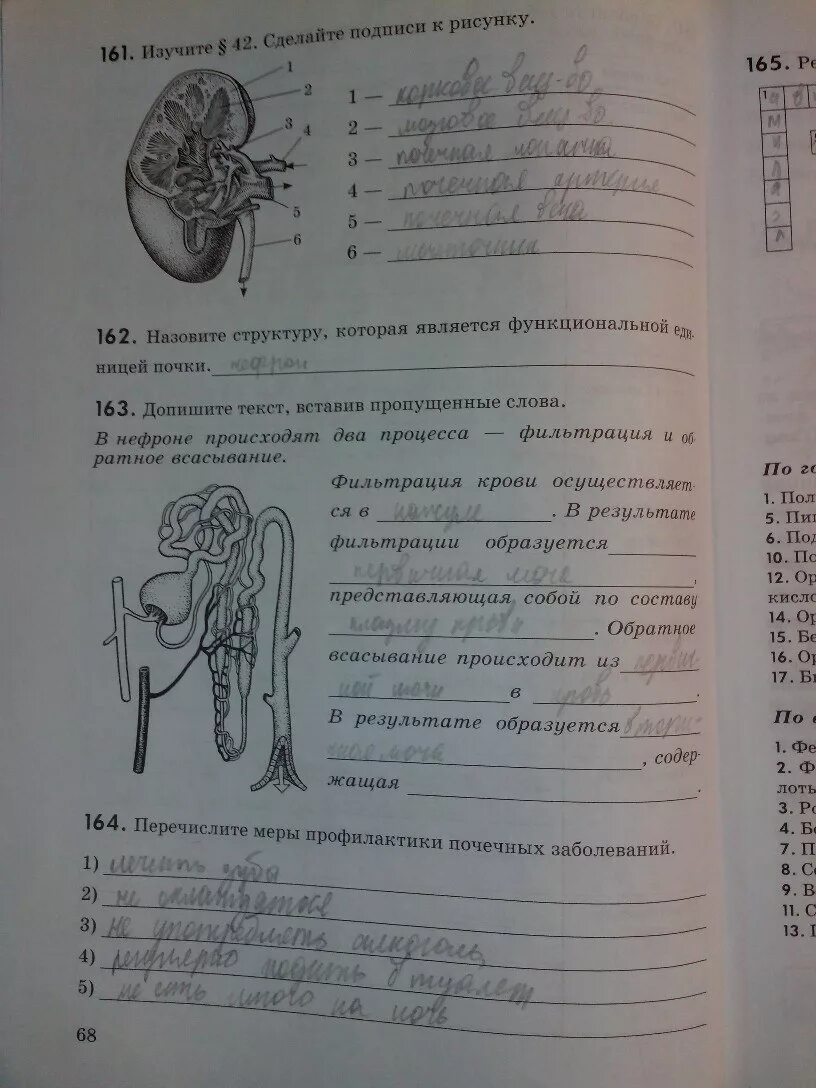 161. Изучите § 42. Сделайте подписи к рисунку.
1
2
3
4
5
6
1 — корковое вещ-во
2 — мозговое вещ-во
3 — почечная лоханка
4 — почечная артерия
5 — почечная вена
6 — мочеточник
162. Назовите структуру, которая является функциональной еди-
ницей почки. нефрон
163. Допишите текст, вставив пропущенные слова.
В нефроне происходят два процесса — фильтрация и об-
ратное всасывание.
Фильтрация крови осуществляет-
ся в капсуле . В результате
фильтрации образуется
первичная моча ,
представляющая собой по составу
плазму крови . Обратное
всасывание происходит из первич-
ной мочи в кровь .
В результате образуется втори-
чная моча , содер-
жащая .
164. Перечислите меры профилактики почечных заболеваний.
1) лечить зубы
2) не охлаждаться
3) не употреблять алкоголь
4) регулярно ходить в туалет
5) не есть много на ночь
68
165. Ре
1 а в
м
и
л
а
з
а
По го
1. Пол
5. Пи
6. Под
10. По
12. Ор
кисло
14. Ор
15. Бе
16. Ор
17. Б
По в
1. Фе
2. Ф
лоты
3. Ро
4. Бо
7. П
8. Со
9. В
11. С
13. Г